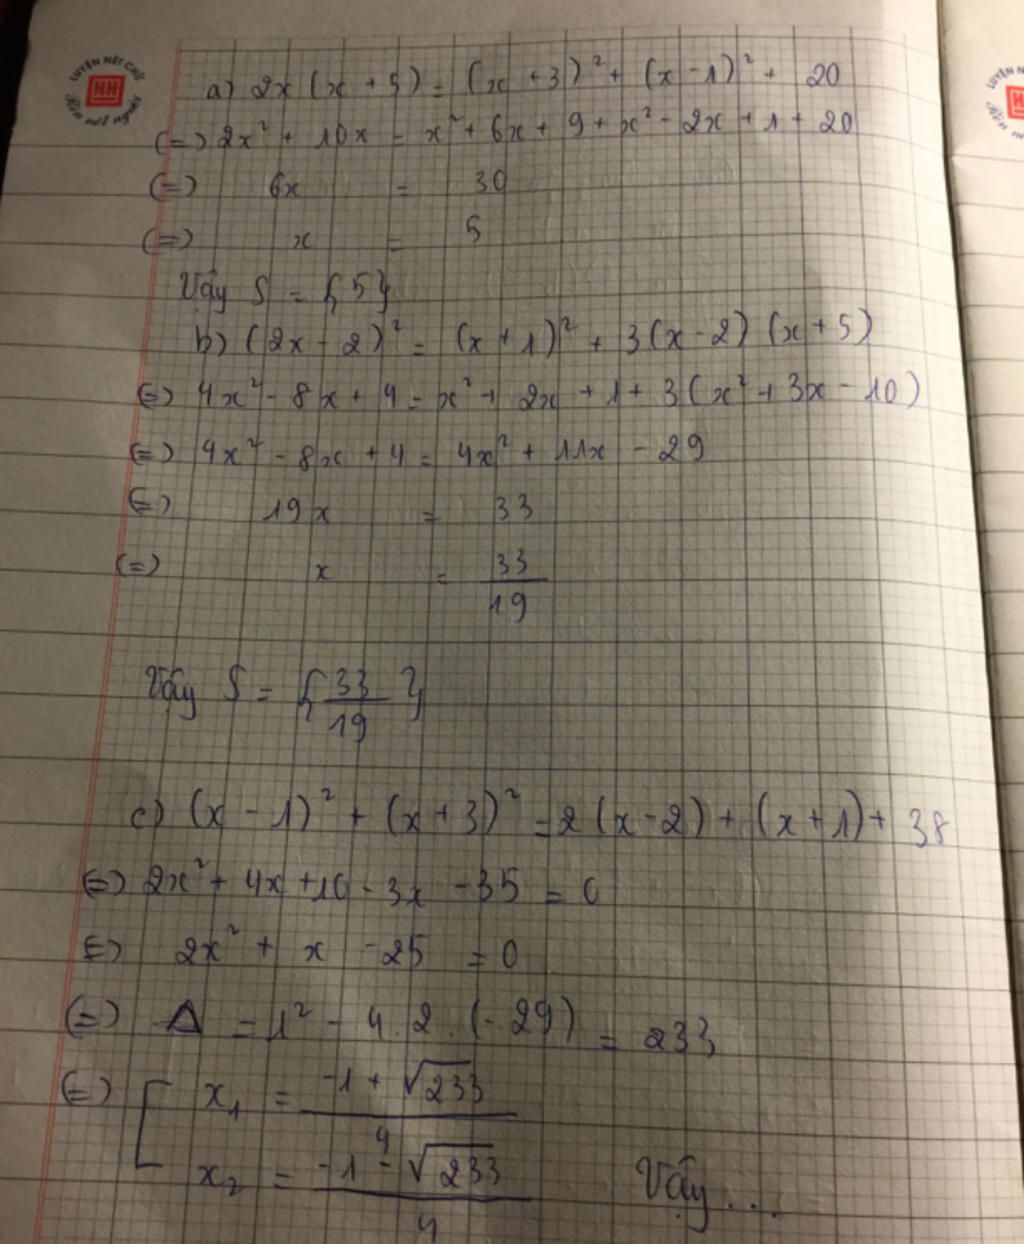 LUYỆN NÉT CHỮ
HH
Rèn nết người
a) 2x (x + 5) = (x + 3)² + (x - 1)² + 20
(=) 2x² + 10x = x² + 6x + 9 + x² - 2x + 1 + 20
(=) 6x = 30
(=) x = 5
Vậy S = {5}
b) (2x - 2)² = (x + 1)² + 3(x - 2) (x + 5)
(=) 4x² - 8x + 4 = x² + 2x + 1 + 3(x² + 3x - 10)
(=) 4x² - 8x + 4 = 4x² + 11x - 29
(=) 19x = 33
(=) x = 33/19
Vậy S = {33/19}
c) (x - 1)² + (x + 3)² = 2(x - 2) + (x + 1) + 38
(=) 2x² + 4x + 10 - 3x - 35 = 0
(=) 2x² + x - 25 = 0
(=) Δ = 1² - 4.2.(-29) = 233
(=) [ x₁ = (-1 + √233)/4
x₂ = (-1 - √233)/4 Vậy ...
LUYỆN N